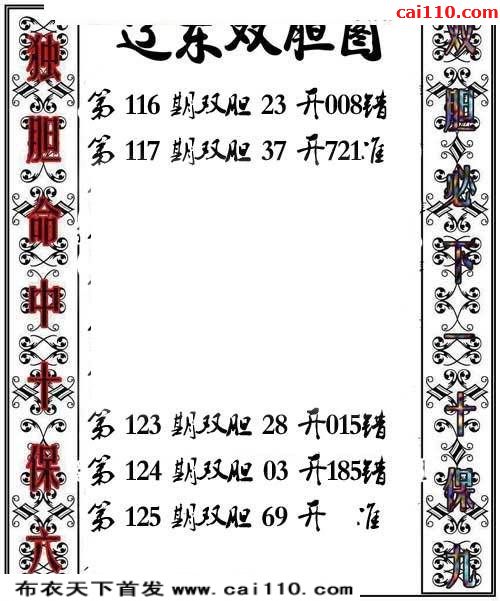 cai110.com
辽东双胆图
独胆命中十保六
双胆必下一十保九
第 116 期双胆 23 开008错
第 117 期双胆 37 开721准
第 123 期双胆 28 开015错
第 124 期双胆 03 开185错
第 125 期双胆 69 开 准
布衣天下首发 www.cai110.com